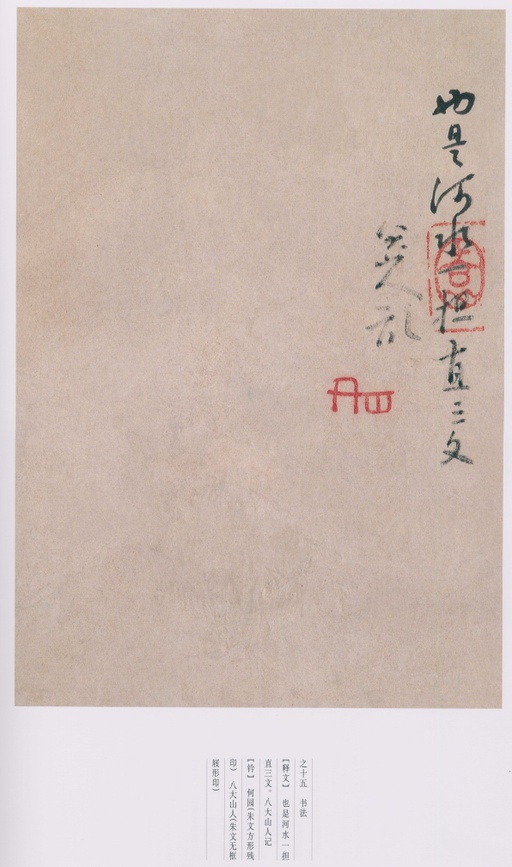 也是河水一担直三文
八大山人记
之十五 书法
【释文】 也是河水一担
直三文。八大山人记
【钤】 何园（朱文方形残
印） 八大山人（朱文无框
屐形印）